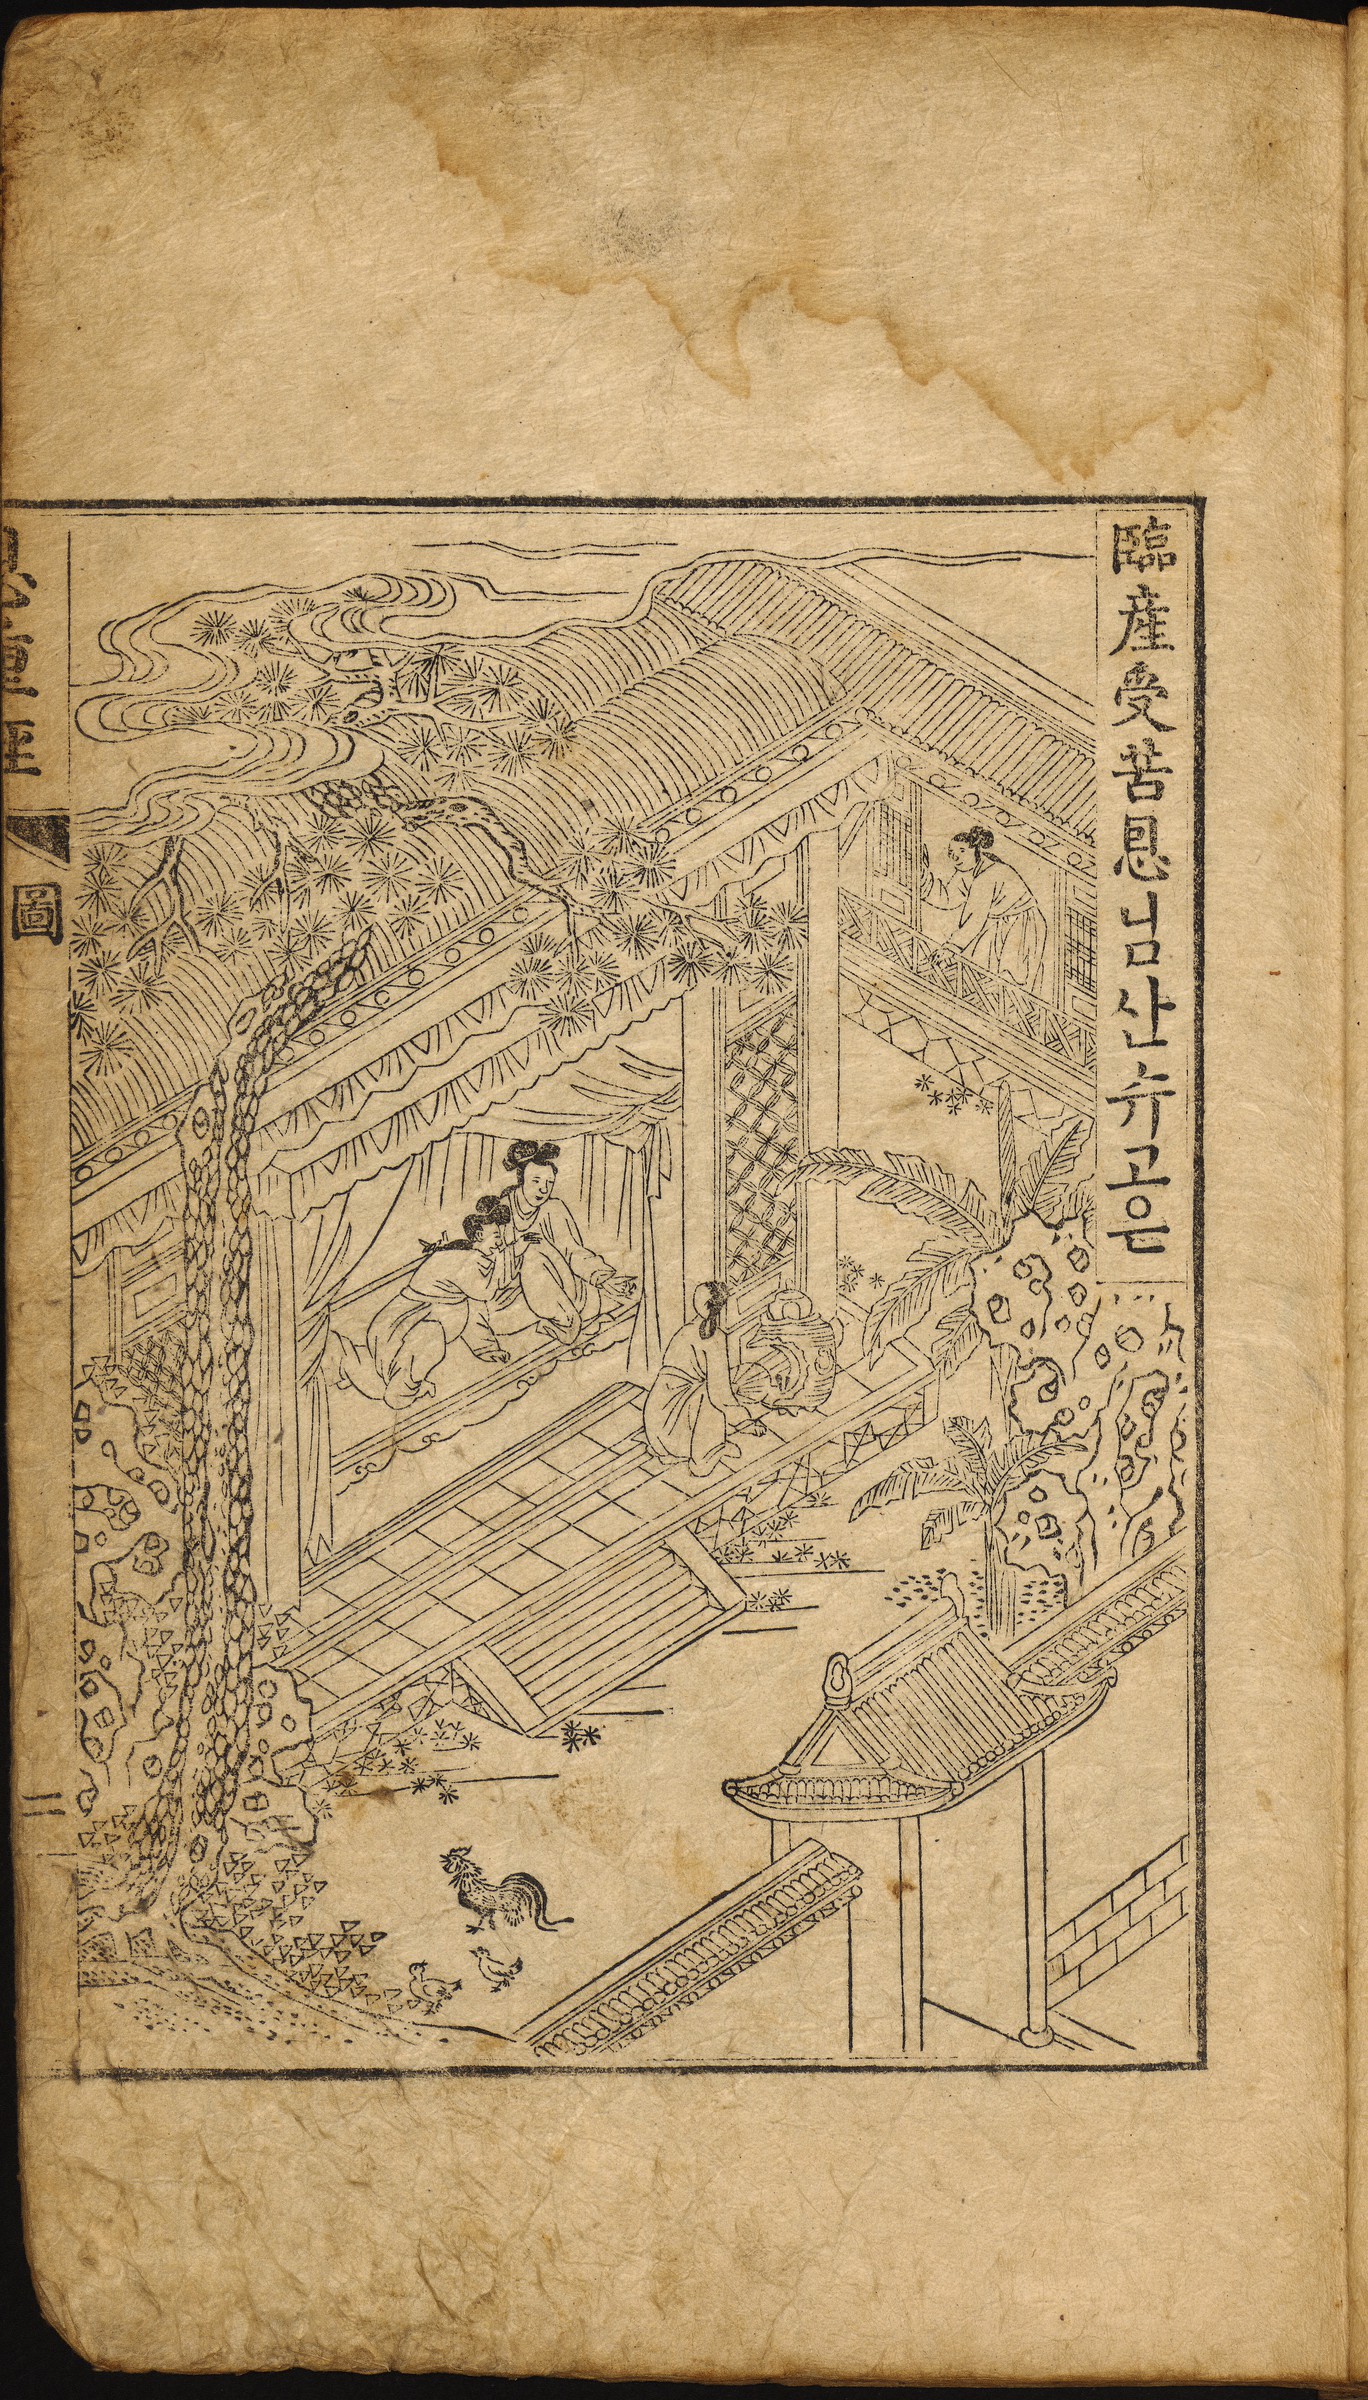 臨産受苦恩님산슈고은
恩重經 圖 二